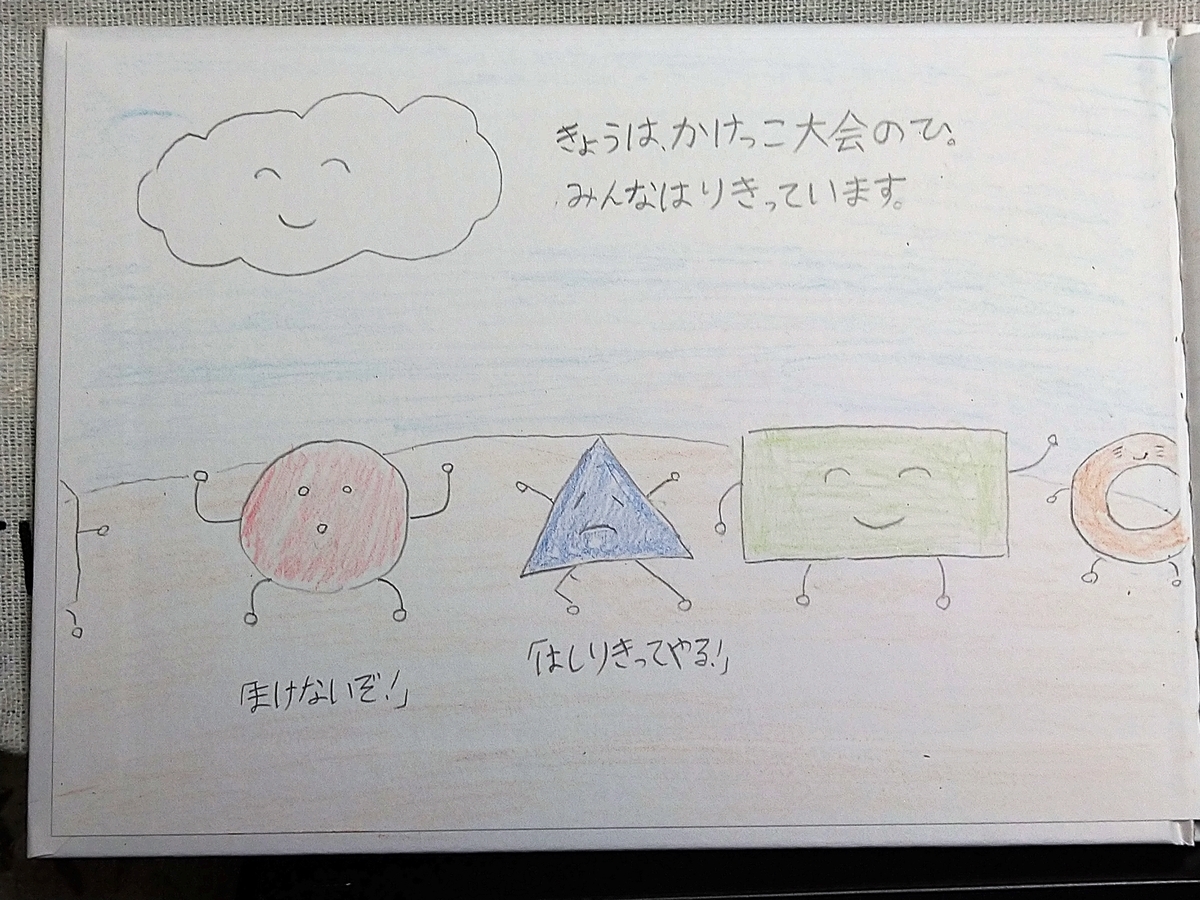 きょうは、かけっこ大会のひ。
みんなはりきっています。
「はしりきってやる!」
「まけないぞ!」